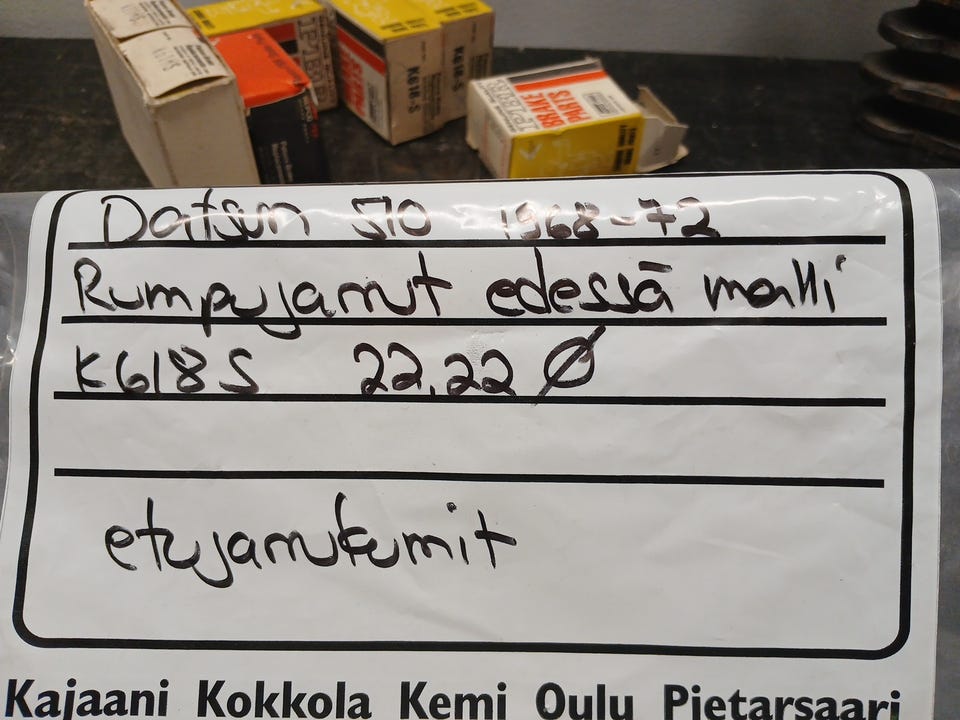 K618-S
K618-S
BRAKE
PARTS
Datsun 510 1968-72
Rumpujarrut edessä malli
K618S 22,22 Ø
etujarrukumit
Kajaani Kokkola Kemi Oulu Pietarsaari